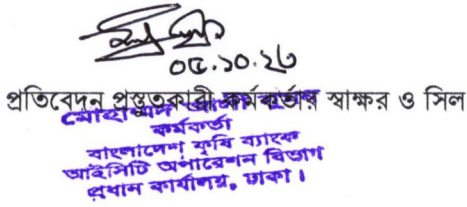 ০৫.১০.২৩
প্রতিবেদন প্রস্তুতকারী কর্মকর্তার স্বাক্ষর ও সিল
মোহাম্মদ
কর্মকর্তা
বাংলাদেশ কৃষি ব্যাংক
আইসিটি অপারেশন বিভাগ
প্রধান কার্যালয়, ঢাকা।